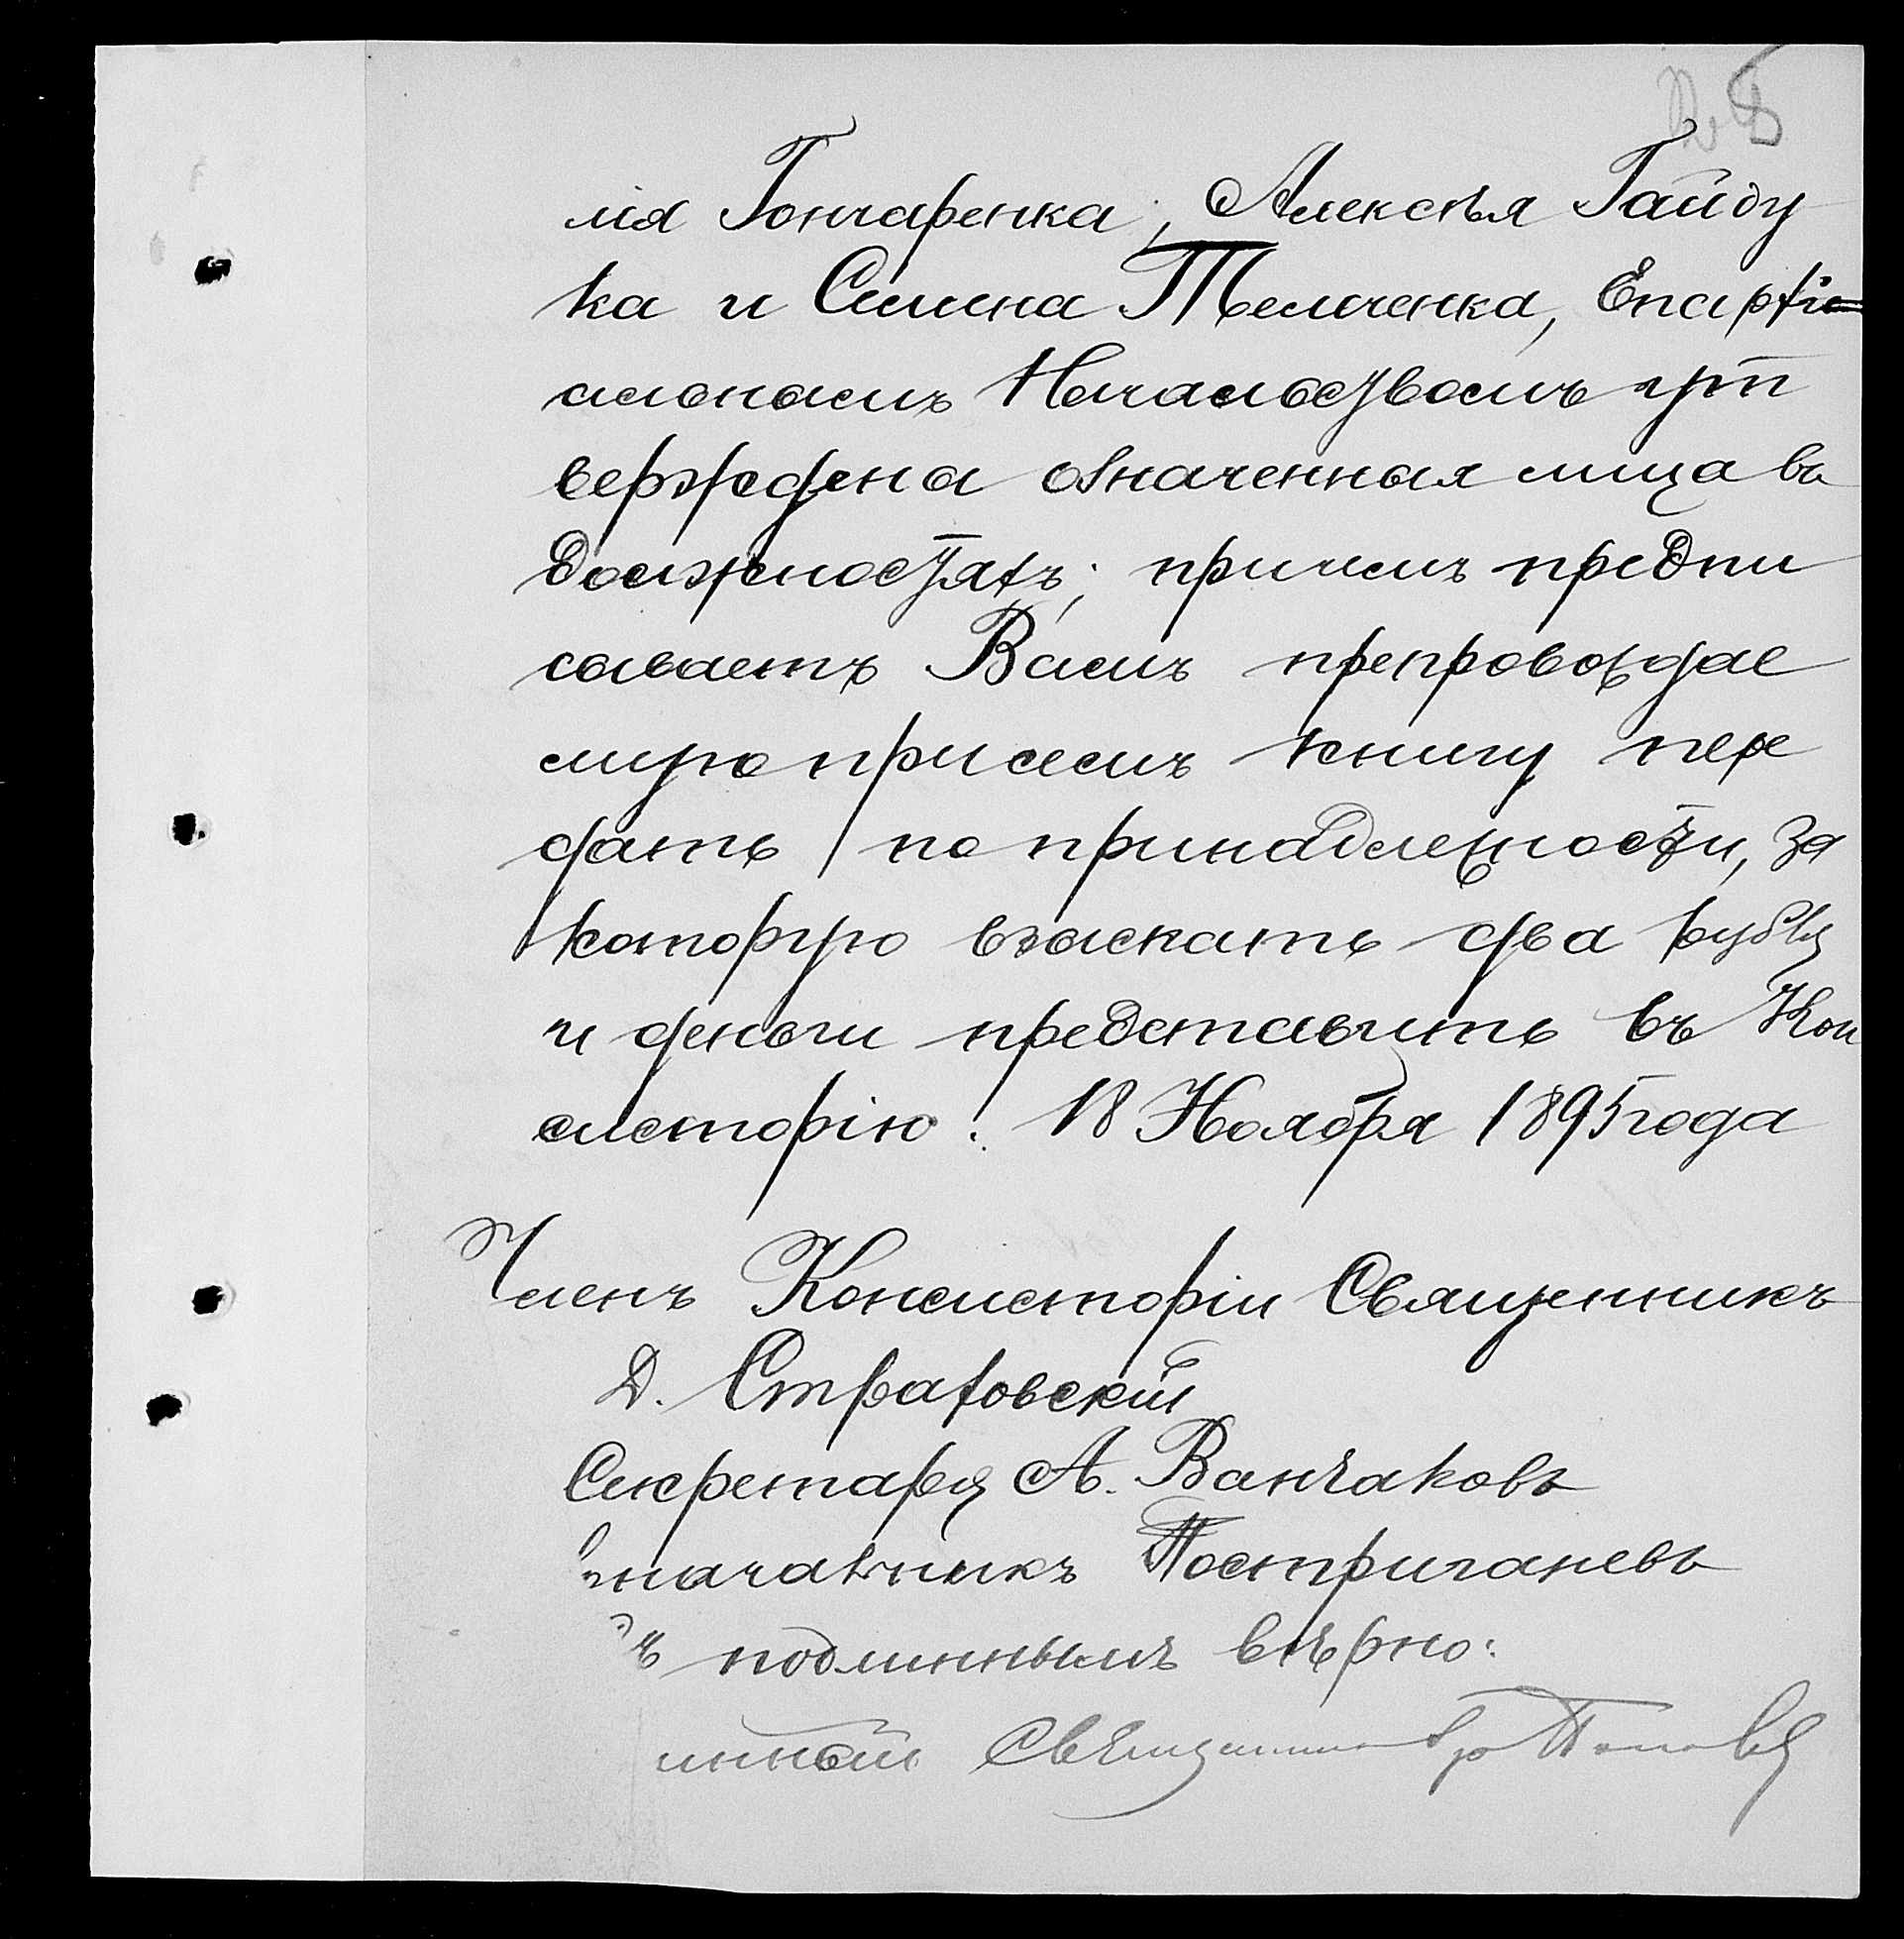 лія Гончаренка, Алексѣя Гайду
ка и Симна Темченка, Епархі=
альнымъ Начальствомъ ут
верждена означенныя лица въ
должностяхъ; причемъ предпи
сываетъ Вамъ препровождае
мую присемъ книгу пере
дать по принадлежности, за
которую взыскать два рубля
и деньги представить въ Кон
систорію. 18 Ноября 1895 года
Членъ Консисторіи Священникъ
Д. Стратовскій
Секретарь А. Ванчаковъ
Постригачевъ
ъ подлиннымъ вѣрно:
нный Священникъ Поповъ